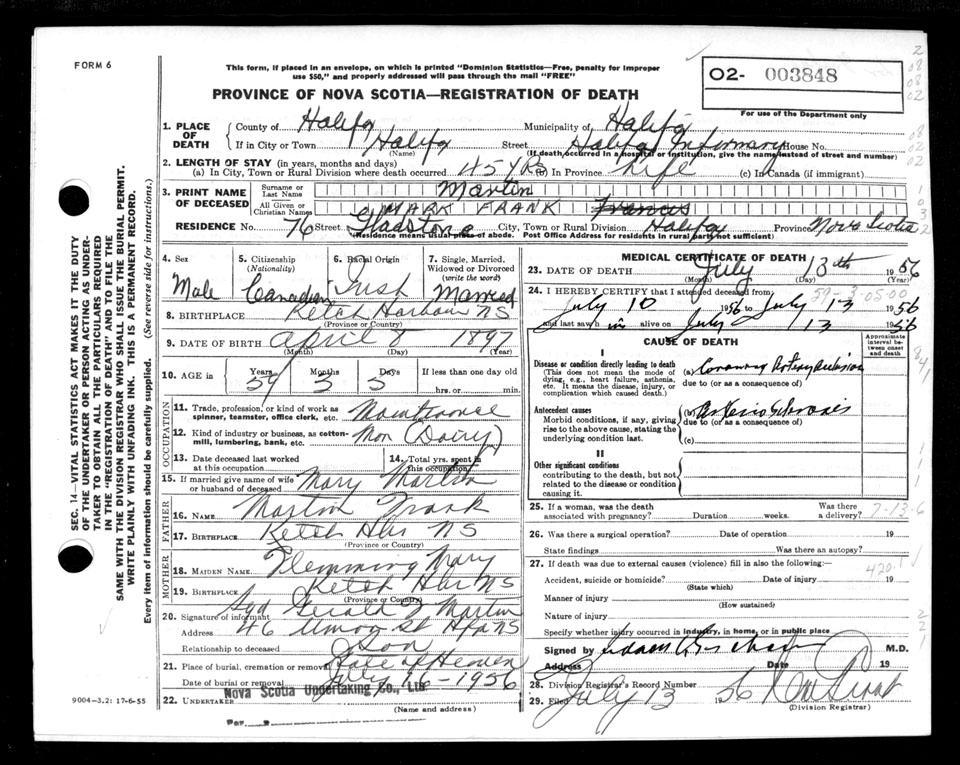 FORM 6
This form, if placed in an envelope, on which is printed "Dominion Statistics—Free, penalty for improper
use $50," and properly addressed will pass through the mail "FREE"
O2- 003848
For use of the Department only
PROVINCE OF NOVA SCOTIA—REGISTRATION OF DEATH
1. PLACE OF DEATH
County of Halifax Municipality of Halifax
If in City or Town Halifax (Name) Street Halifax Infirmary House No.
(If death occurred in a hospital or institution, give the name instead of street and number)
2. LENGTH OF STAY (in years, months and days)
(a) In City, Town or Rural Division where death occurred 45 yrs (b) In Province Life (c) In Canada (if immigrant)
3. PRINT NAME OF DECEASED
Surname or Last Name Martin
All Given or Christian Names MARK FRANK Francis
RESIDENCE No. 76 Street Gladstone City, Town or Rural Division Halifax Province Nova Scotia
(Residence means usual place of abode. Post Office Address for residents in rural parts not sufficient)
4. Sex Male
5. Citizenship (Nationality) Canadian
6. Racial Origin Irish
7. Single, Married, Widowed or Divorced (write the word) Married
8. BIRTHPLACE Ketch Harbour NS
(Province or Country)
9. DATE OF BIRTH April 8 1897
(Month) (Day) (Year)
10. AGE in Years 59 Months 3 Days 5 If less than one day old
hrs. or min.
OCCUPATION
11. Trade, profession, or kind of work as
spinner, teamster, office clerk, etc. Maintenance
12. Kind of industry or business, as cotton-
mill, lumbering, bank, etc. Man (Dairy)
13. Date deceased last worked
at this occupation
14. Total yrs. spent in
this occupation
15. If married give name of wife
or husband of deceased Mary Martin
FATHER
16. NAME Martin Frank
17. BIRTHPLACE Ketch Hbr NS
(Province or Country)
MOTHER
18. MAIDEN NAME Flemming Mary
19. BIRTHPLACE Ketch Hbr NS
(Province or Country)
20. Signature of informant Sgd Gerald J Martin
Address 46 Union St Hfx NS
Relationship to deceased Son
21. Place of burial, cremation or removal Gate of Heaven
Date of burial or removal July 16-1956
22. UNDERTAKER Nova Scotia Undertaking Co., Ltd
(Name and address)
Per
9004—3.2: 17-6-55
MEDICAL CERTIFICATE OF DEATH
23. DATE OF DEATH July 13th 1956
(Month) (Day) (Year)
59-3-05-00
24. I HEREBY CERTIFY that I attended deceased from
July 10 1956 to July 13 1956
and last saw him alive on July 13 1956
CAUSE OF DEATH
Approximate interval between onset and death
I
Disease or condition directly leading to death
(This does not mean the mode of
dying, e.g., heart failure, asthenia,
etc. It means the disease, injury, or
complication which caused death.)
(a) Coronary Artery occlusion
due to (or as a consequence of)
Antecedent causes
Morbid conditions, if any, giving
rise to the above cause, stating the
underlying condition last.
(b) Arteriosclerosis
due to (or as a consequence of)
(c)
II
Other significant conditions
contributing to the death, but not
related to the disease or condition
causing it.
25. If a woman, was the death
associated with pregnancy? Duration weeks. Was there
a delivery?
7-13-6
26. Was there a surgical operation? Date of operation 19
State findings Was there an autopsy?
27. If death was due to external causes (violence) fill in also the following:—
420.1
Accident, suicide or homicide? Date of injury 19
(State which)
Manner of injury
(How sustained)
Nature of injury
Specify whether injury occurred in industry, in home, or in public place
Signed by M.D.
Address Date 19
28. Division Registrar's Record Number
29. Filed July 13 1956
(Division Registrar)
SEC. 14—VITAL STATISTICS ACT MAKES IT THE DUTY
OF THE UNDERTAKER OR PERSON ACTING AS UNDER-
TAKER TO OBTAIN ALL THE PARTICULARS REQUIRED
IN THE "REGISTRATION OF DEATH" AND TO FILE THE
SAME WITH THE DIVISION REGISTRAR WHO SHALL ISSUE THE BURIAL PERMIT.
WRITE PLAINLY WITH UNFADING INK. THIS IS A PERMANENT RECORD.
Every item of information should be carefully supplied. (See reverse side for instructions.)